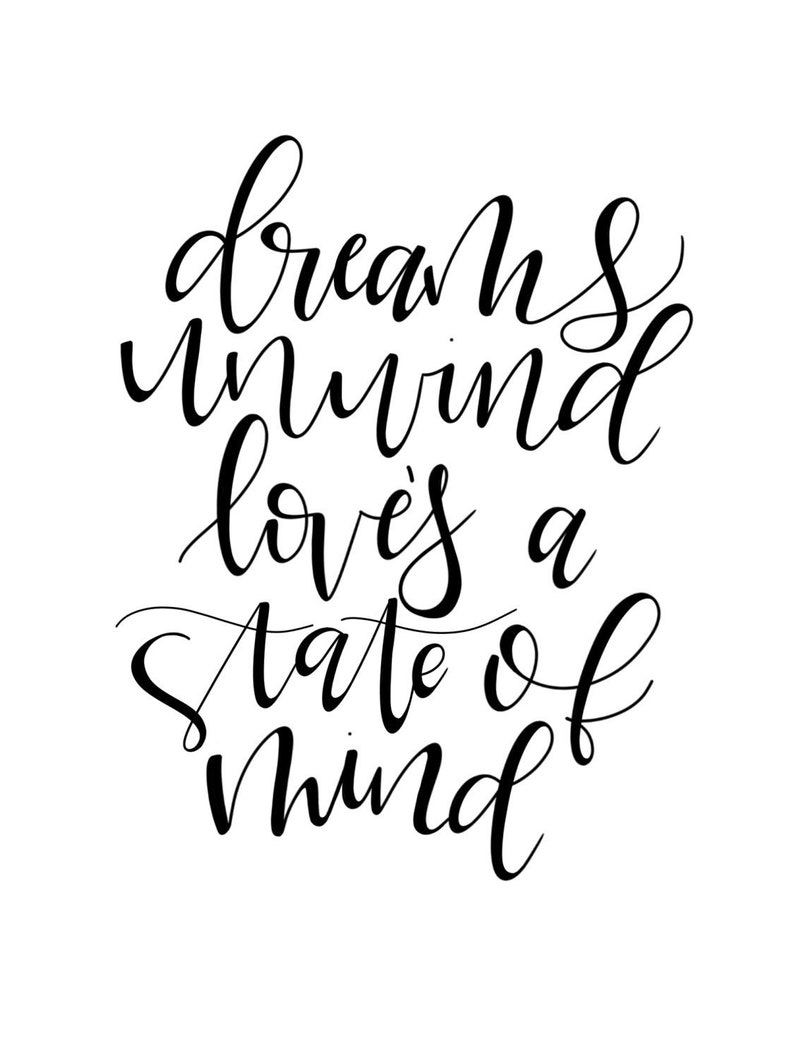 dreams
unwind
love's a
state of
mind